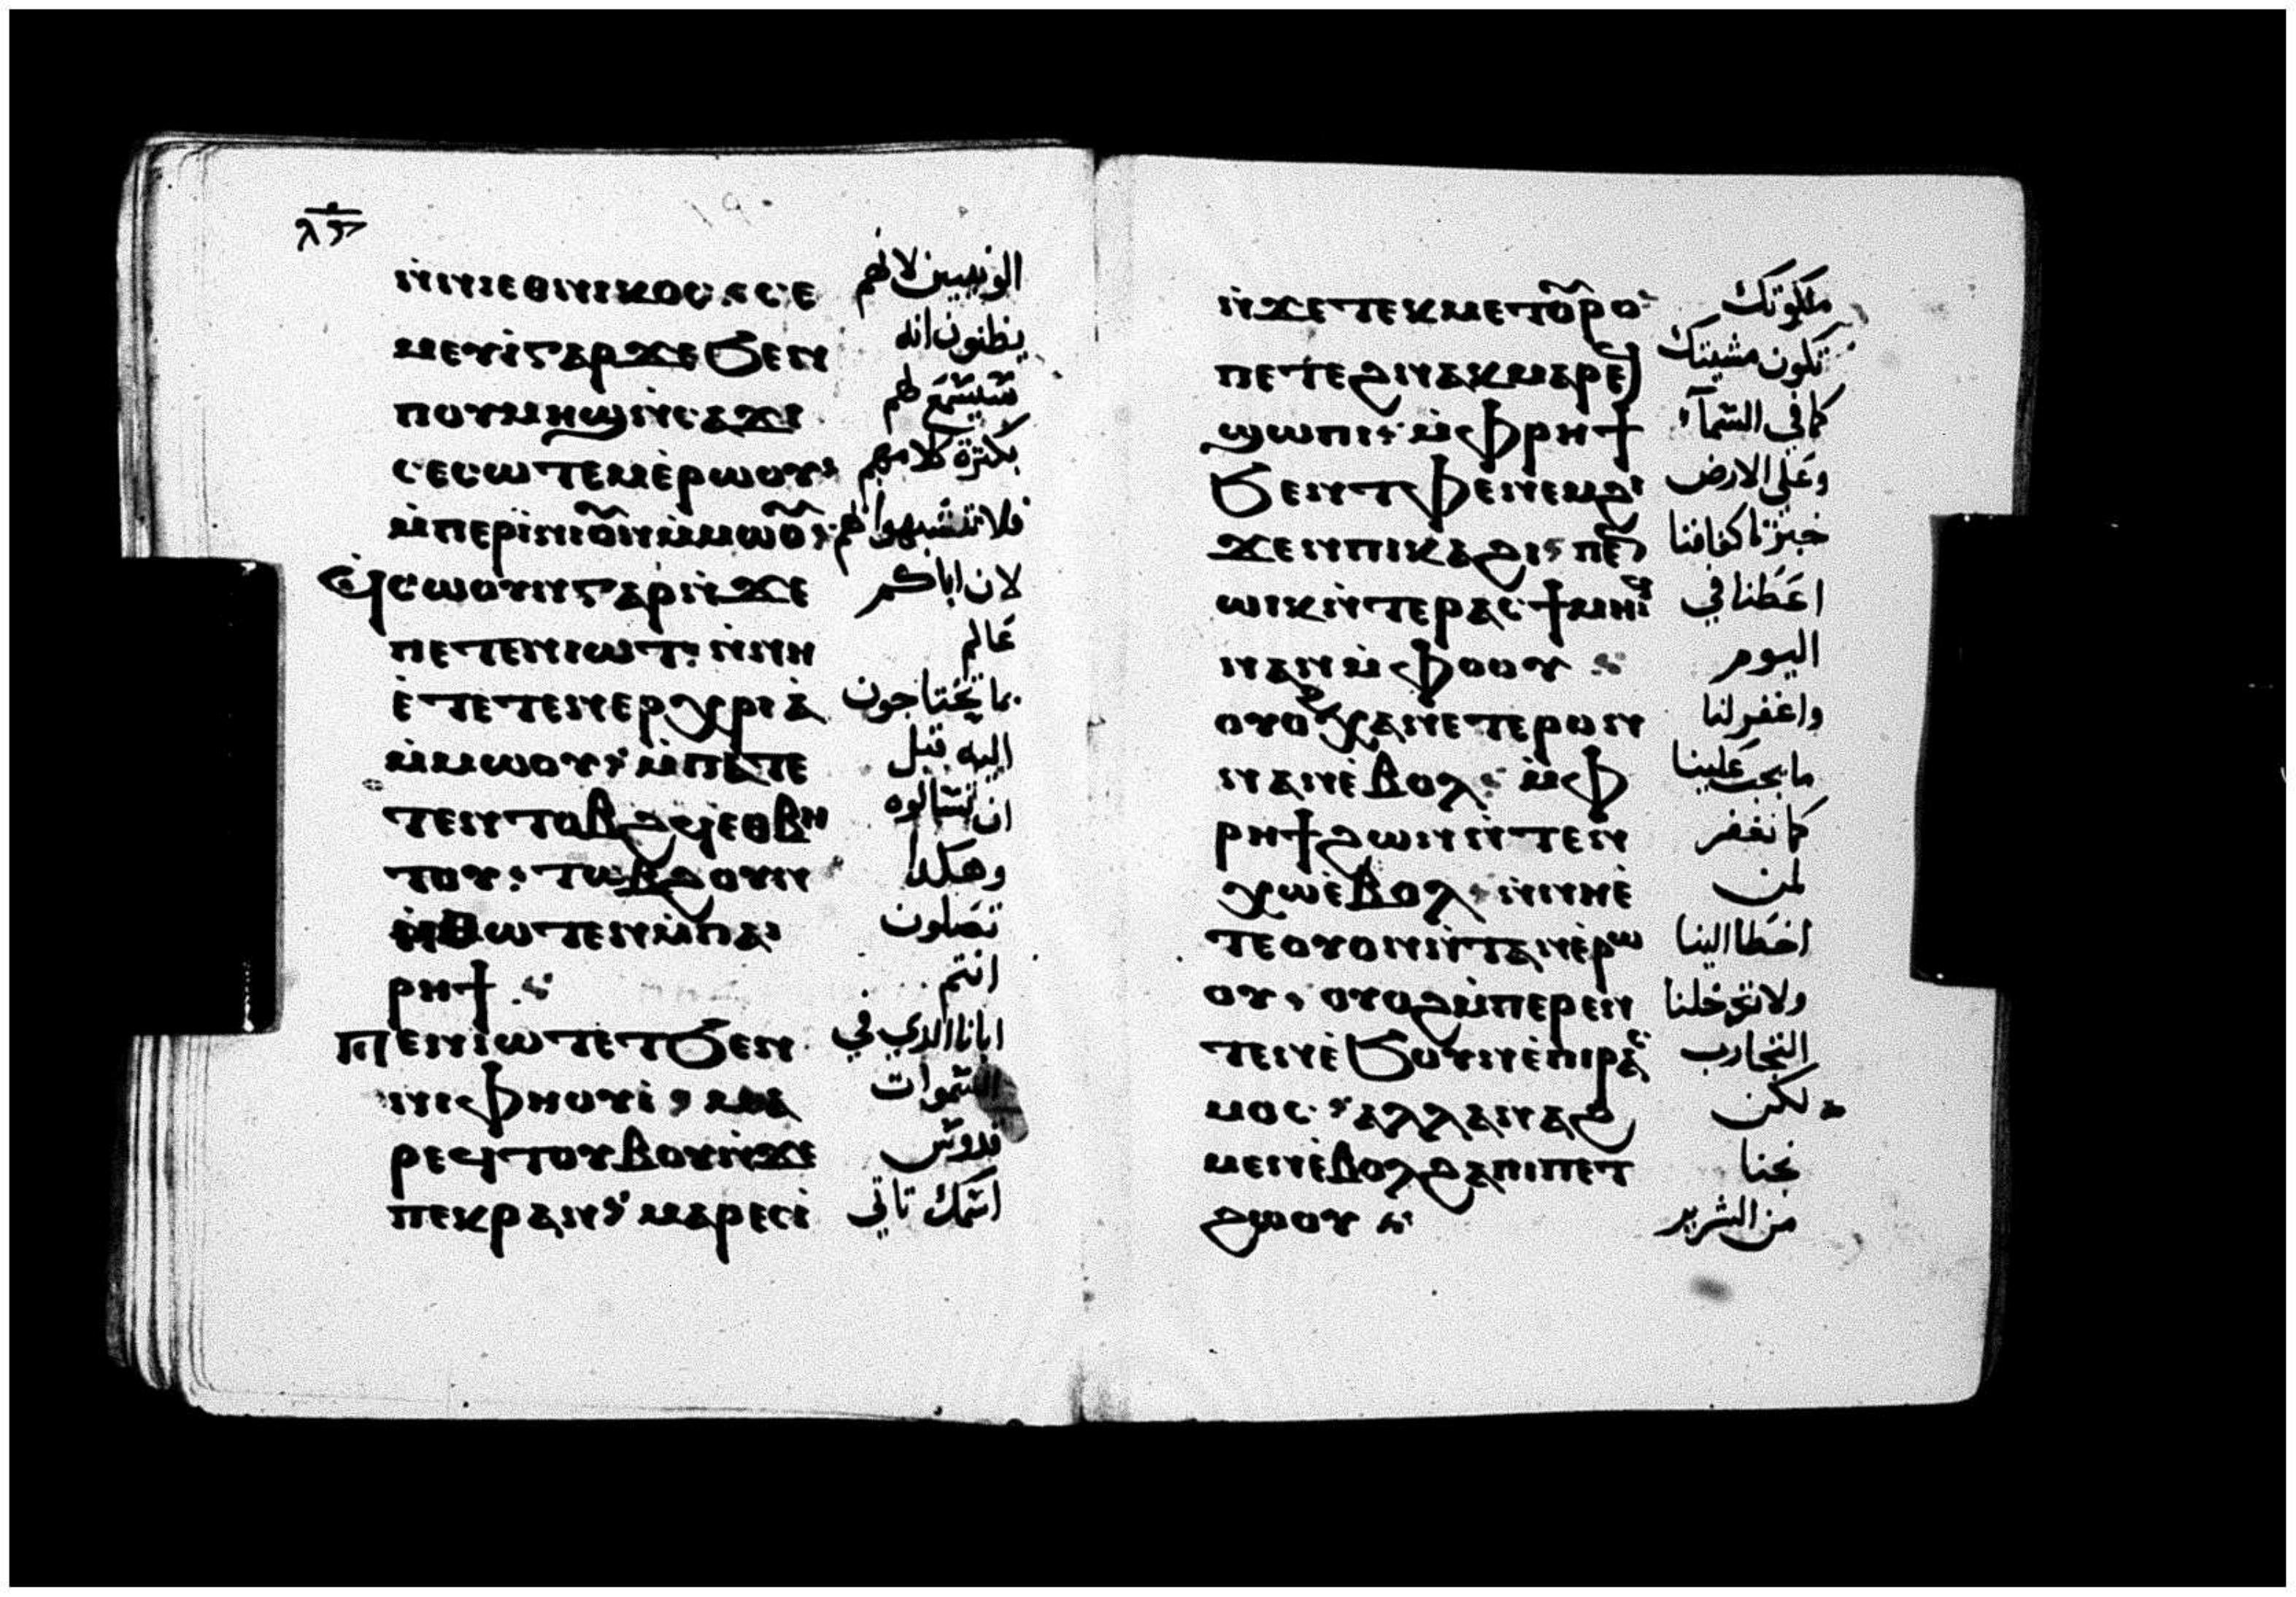 ⲛ̀ⲛⲓⲉⲑⲛⲓⲕⲟⲥ ⲥⲉ الوثنيين لانهم
ⲙⲉⲩⲓ̀ⲅⲁⲣϫⲉϧⲉⲛ يظنون انه
ⲡⲟⲩⲙⲏϣⲛ̀ⲥⲁϫⲓ سيسمع لهم
ⲥⲉⲥⲱⲧⲉⲙⲉ̀ⲣⲱⲟⲩ بكثرة كلامهم
ⲙ̀ⲡⲉⲣⲓ̀ⲛⲓⲟ̅ⲛⲙ̀ⲙⲱⲟ̅ فلا تتشبهوا لهم
ϥ̀ⲥⲱⲟⲩⲛⲅⲁⲣⲛ̀ϫⲉ لان اباكم
ⲡⲉⲧⲉⲛⲓⲱⲧ ⲛ̀ⲛⲏ عالم
ⲉ̀ⲧⲉⲧⲉⲛⲉⲣⲭⲣⲓⲁ̀ بما تحتاجون
ⲙ̀ⲙⲱⲟⲩ ⲙ̀ⲡⲁⲧⲉ اليه قبل
ⲧⲉⲛⲧⲟⲃϩϥⲉⲑⲃⲏ ان تسالوه
ⲧⲟⲩ ⲧⲱⲃϩⲟⲩⲛ وهكدا
ⲛ̀ⲑⲱⲧⲉⲛⲙ̀ⲡⲁⲓ تصلون
ⲣⲏϯ انتم
ⲡⲉⲛⲓⲱⲧⲉ̀ⲧϧⲉⲛ ابانا الدي في
ⲛⲓⲫⲏⲟⲩⲓ̀ ⲙⲁ السموات
ⲣⲉϥⲧⲟⲩⲃⲟⲛ̀ϫⲉ قدوس
ⲡⲉⲕⲣⲁⲛ ⲙⲁⲣⲉⲥⲓ̀ اسمك تاتي
ⲛ̀ϫⲉⲧⲉⲕⲙⲉⲧⲟ̅ⲣⲟ ملكوتك
ⲡⲉⲧⲉϩⲛⲁⲕⲙⲁⲣⲉϥ تكون مشيتك
ϣⲱⲡⲓ ⲙ̀ⲫⲣⲏϯ كما في السمآء
ϧⲉⲛⲧⲫⲉⲛⲉⲙϩⲓ وعلى الارض
ϫⲉⲛⲡⲓⲕⲁϩⲓ ⲡⲉⲛ خبزنا كفافنا
ⲱⲓⲕⲛ̀ⲧⲉⲣⲁⲥϯⲙⲏⲓϥ اعطنا في
ⲛⲁⲛⲙ̀ⲫⲟⲟⲩ اليوم
ⲟⲩⲟϩⲭⲁⲛⲉⲧⲉⲣⲟⲛ واغفر لنا
ⲛⲁⲛⲉ̀ⲃⲟⲗ ⲙ̀ⲫ ما يجب علينا
ⲣⲏϯϩⲱⲛⲛ̀ⲧⲉⲛ كما نغفر
ⲭⲱⲉ̀ⲃⲟⲗ ⲛ̀ⲛⲏⲉ̀ لمن
ⲧⲉⲟⲩⲟⲛⲛ̀ⲧⲁⲛⲉ̀ⲣⲱ اخطا الينا
ⲟⲩ ⲟⲩⲟϩⲙ̀ⲡⲉⲣⲉⲛ ولا تدخلنا
ⲧⲉⲛⲉ̀ϧⲟⲩⲛⲉ̀ⲡⲓⲣⲁⲥ التجارب
ⲙⲟⲥ ⲁⲗⲗⲁⲛⲁϩ لكن
ⲙⲉⲛⲉ̀ⲃⲟⲗϩⲁⲡⲓⲡⲉⲧ نجنا
ϩⲱⲟⲩ من الشرير